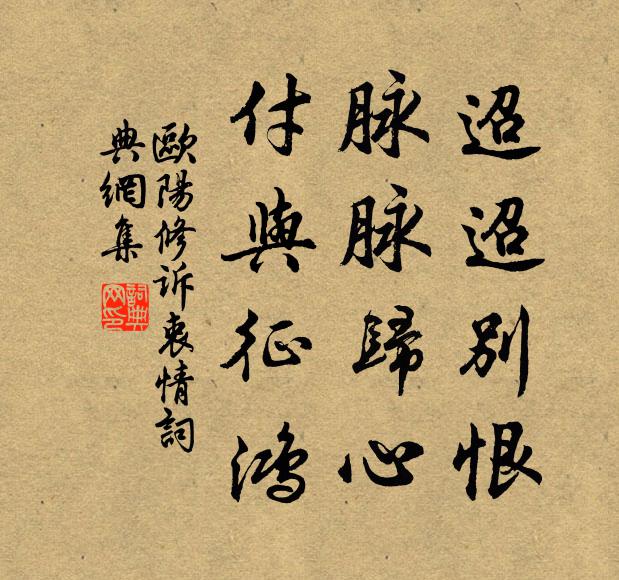 迢迢別恨
脉脉歸心
付與征鴻
歐陽修訴衷情詞
典網集
詞典
网印